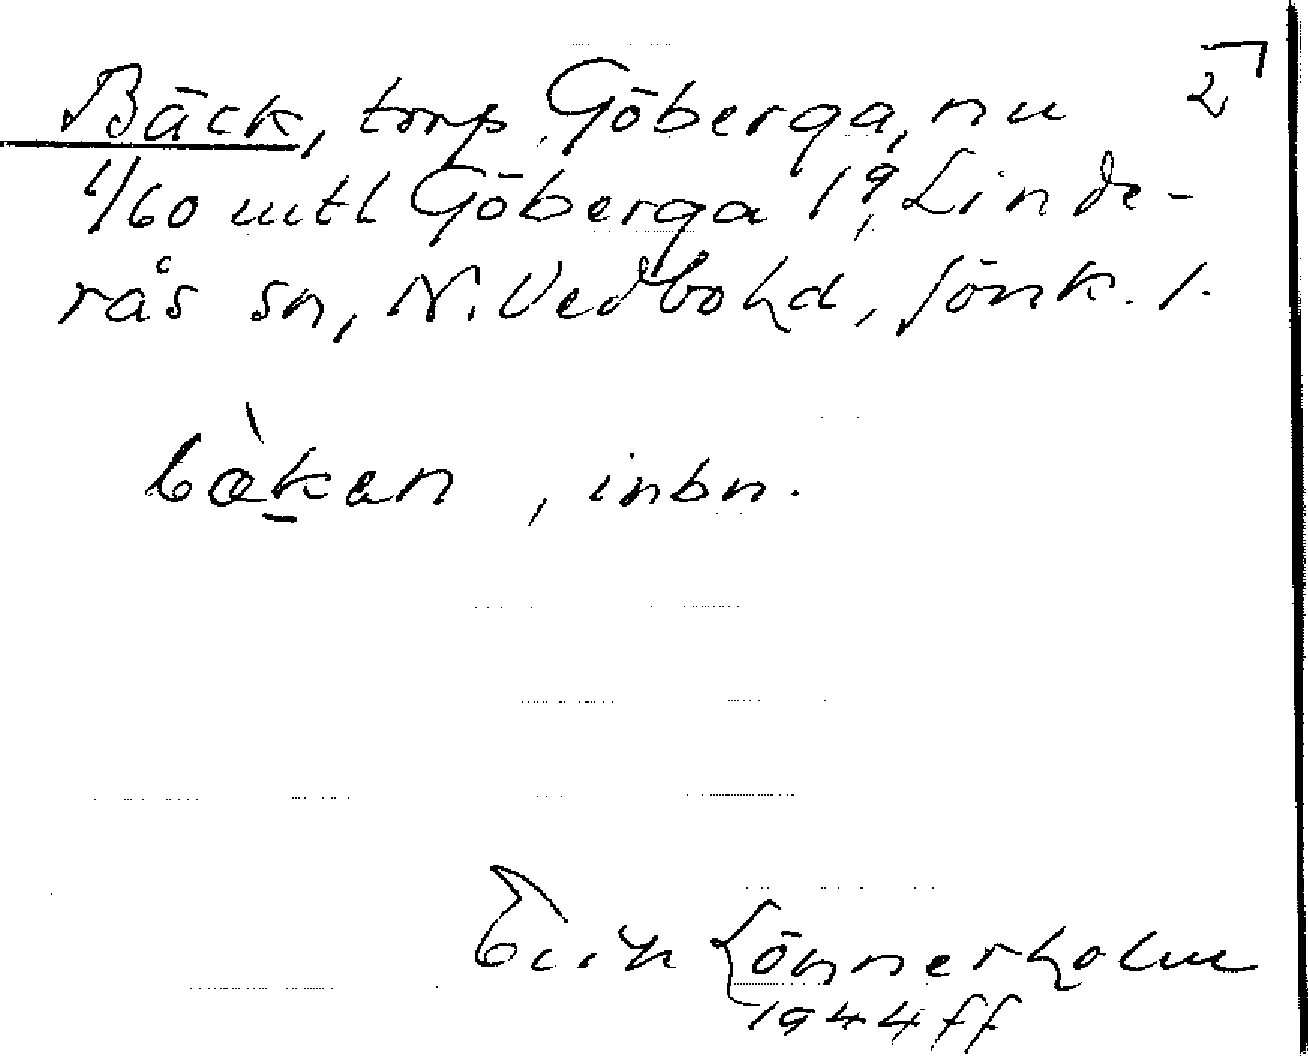 Bäck, torp Göberga, nu 2
1/60 mtl Göberga 1⁹, Linde-
rås sn, N. Vedbo hd, Jönk. l.
bæ̀k̠an, inbn.
Erik Lönnerholm
1944 ff